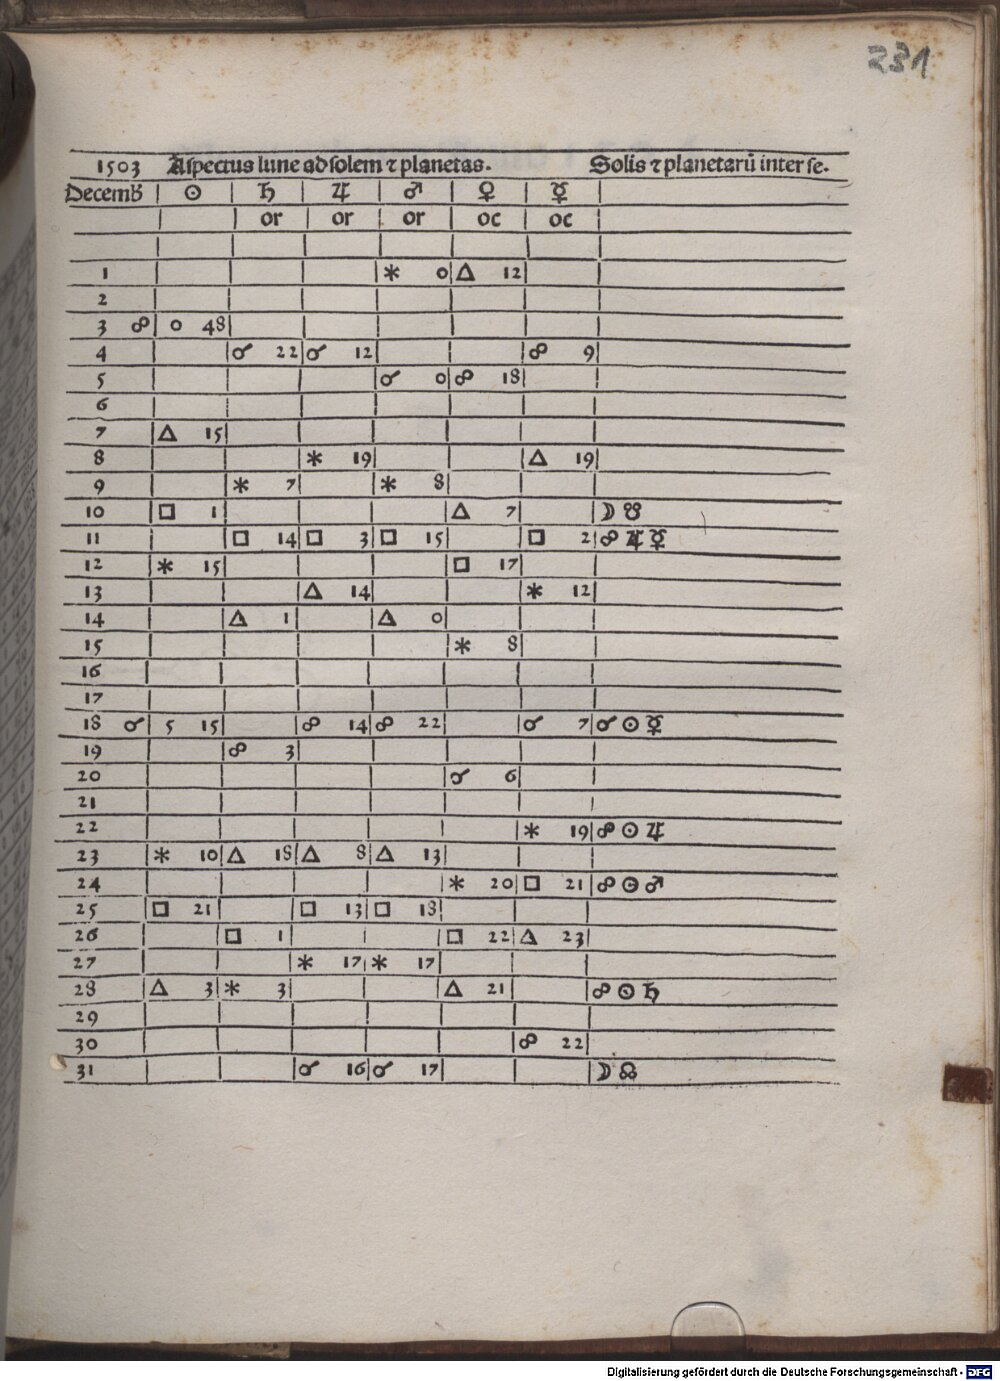 231
1503 Aspectus lune ad solem ⁊ planetas. Solis ⁊ planetarū inter se.
Decemb ☉ ♄ ♃ ♂ ♀ ☿
or or or oc oc
1 ⚹ 0 △ 12
2
3 ☍ 0 48
4 ☌ 22 ☌ 12 ☍ 9
5 ☌ 0 ☍ 18
6
7 △ 15
8 ⚹ 19 △ 19
9 ⚹ 7 ⚹ 8
10 □ 1 △ 7 ☽ ☋
11 □ 14 □ 3 □ 15 □ 2 ☍ ♃ ☿
12 ⚹ 15 □ 17
13 △ 14 ⚹ 12
14 △ 1 △ 0
15 ⚹ 8
16
17
18 ☌ 5 15 ☍ 14 ☍ 22 ☌ 7 ☌ ☉ ☿
19 ☍ 3
20 ☌ 6
21
22 ⚹ 19 ☍ ☉ ♃
23 ⚹ 10 △ 18 △ 8 △ 13
24 ⚹ 20 □ 21 ☍ ☉ ♂
25 □ 21 □ 13 □ 18
26 □ 1 □ 22 △ 23
27 ⚹ 17 ⚹ 17
28 △ 3 ⚹ 3 △ 21 ☍ ☉ ♄
29
30 ☍ 22
31 ☌ 16 ☌ 17 ☽ ☊
Digitalisierung gefördert durch die Deutsche Forschungsgemeinschaft - DFG